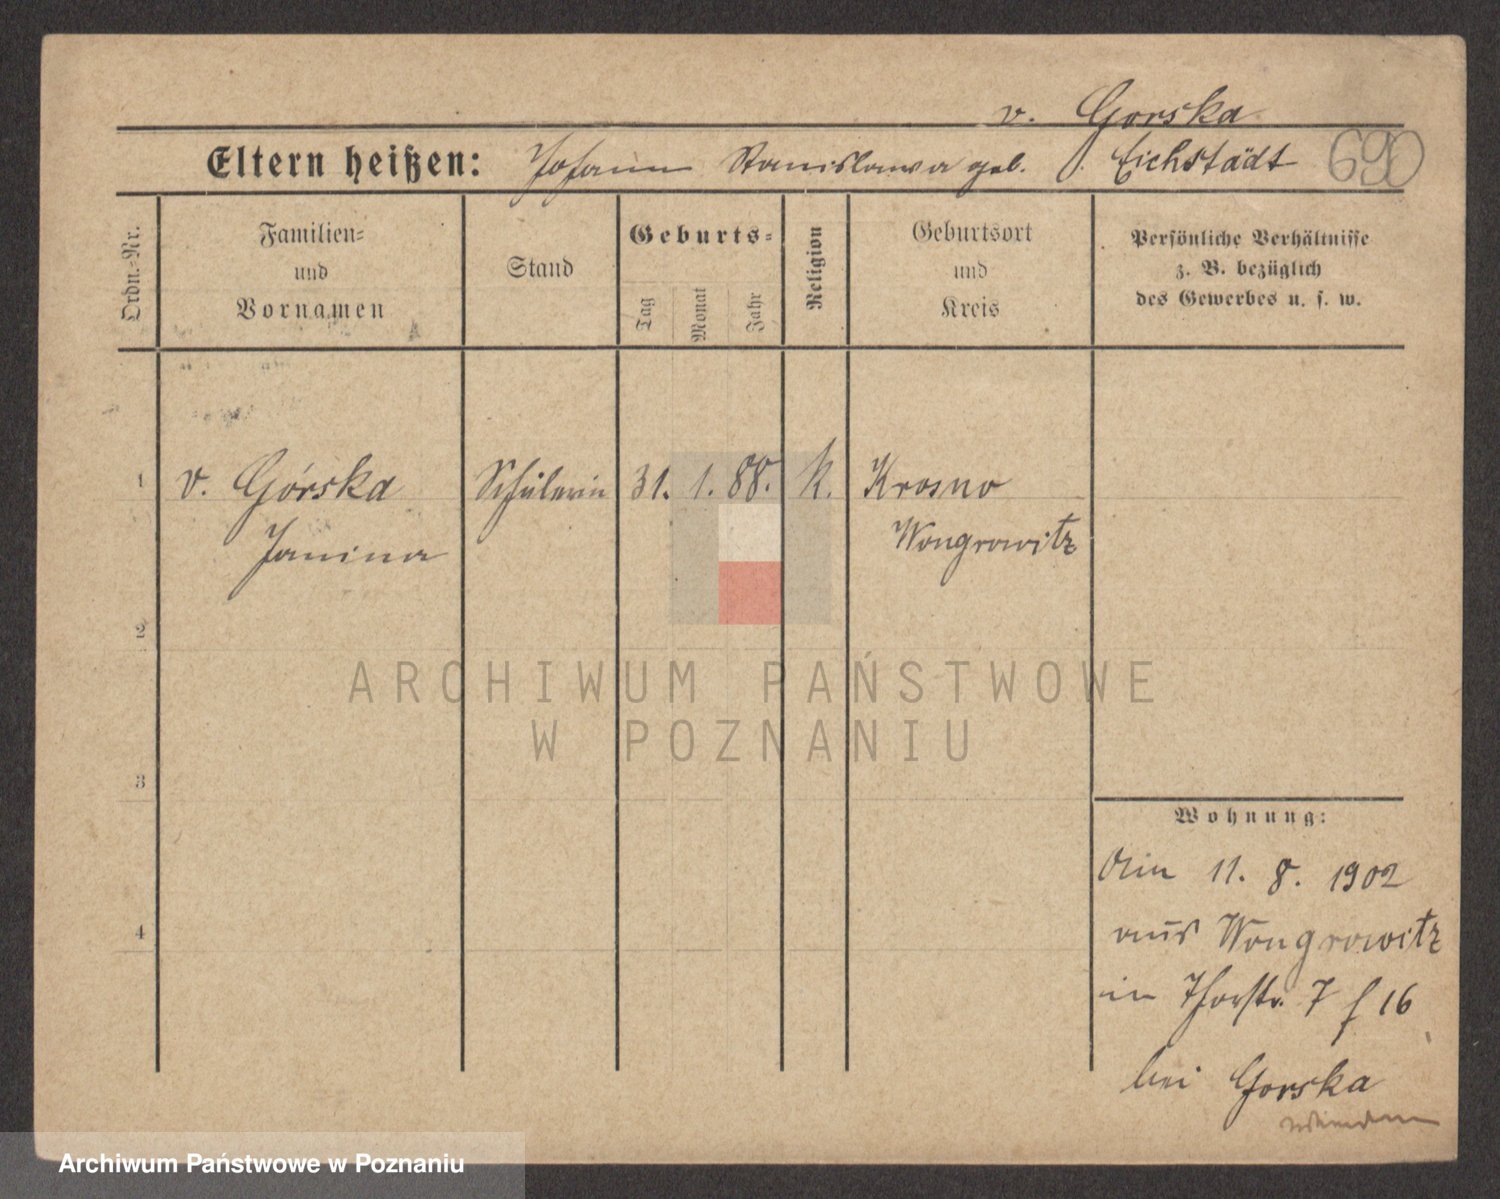 v. Gorska
Eltern heißen: Johann Stanislawa geb. v. Eichstädt 690
Ordn.-Nr.
Familien-
und
Vornamen
Stand
Geburts-
Tag
Monat
Jahr
Religion
Geburtsort
und
Kreis
Persönliche Verhältnisse
z. B. bezüglich
des Gewerbes u. s. w.
1 v. Górska Schülerin 31. 1. 88. k. Krosno
Janina Wongrowitz
2
ARCHIWUM PAŃSTWOWE
W POZNANIU
3
Wohnung:
4
11. 8. 1902
aus Wongrowitz
in Thorstr. 7 f 16
bei Gorska
Archiwum Państwowe w Poznaniu